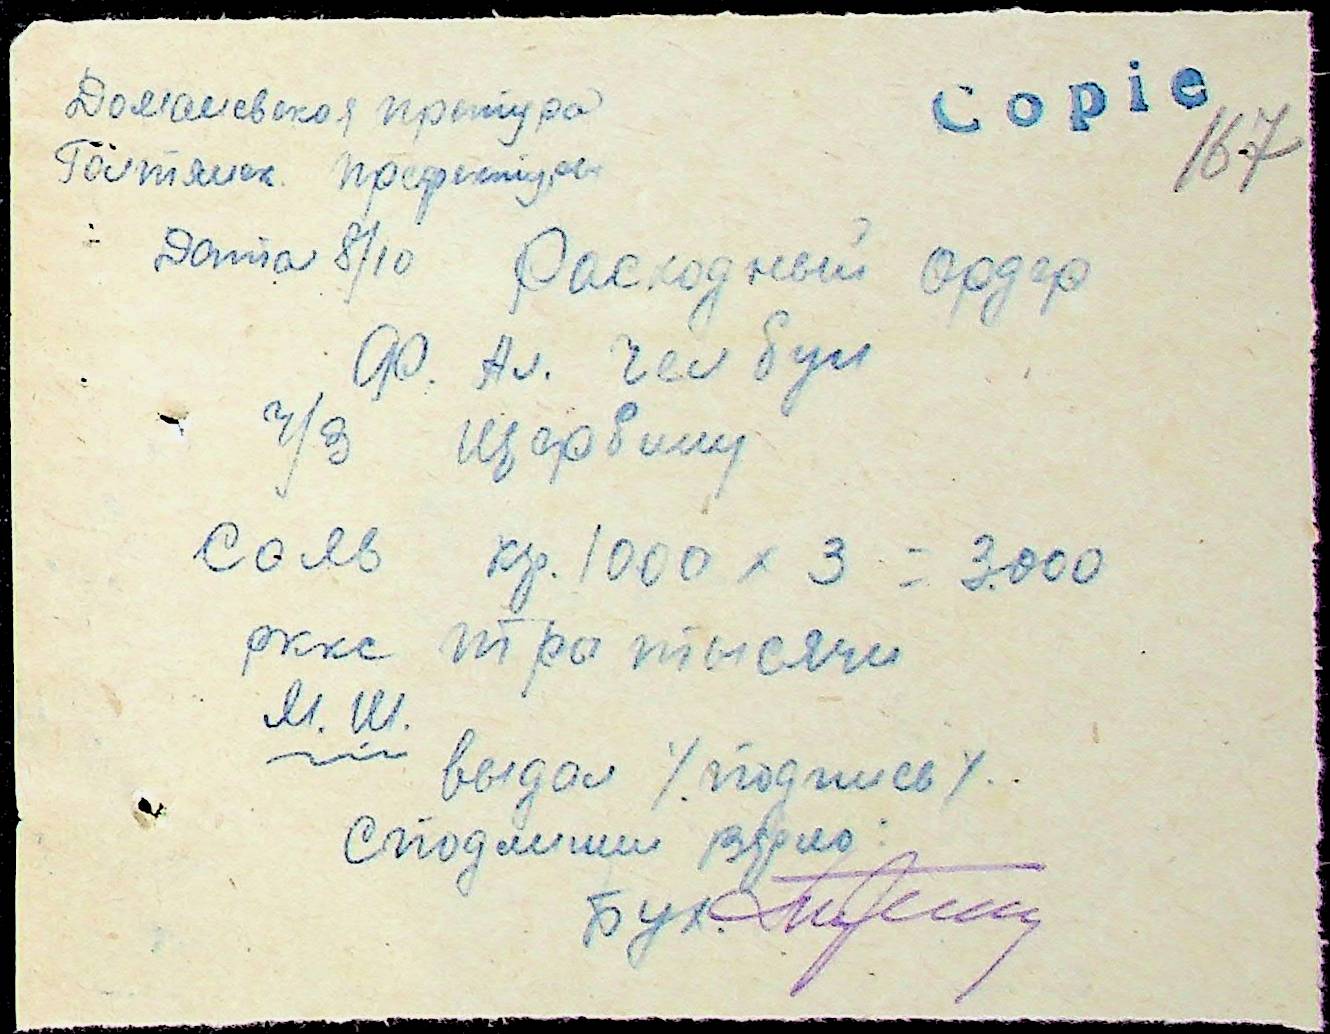 Copie
167
Доманевская претура
Голтянск. префектура
Дата 8/10 Расходный ордер
Ф. Ал. Челбун
ч/з Щербину
Соль кр. 1000 x 3 = 3.000
ркке три тысячи
М. Ш.
выдал /подпись/.
С подлинным верно:
Бух.